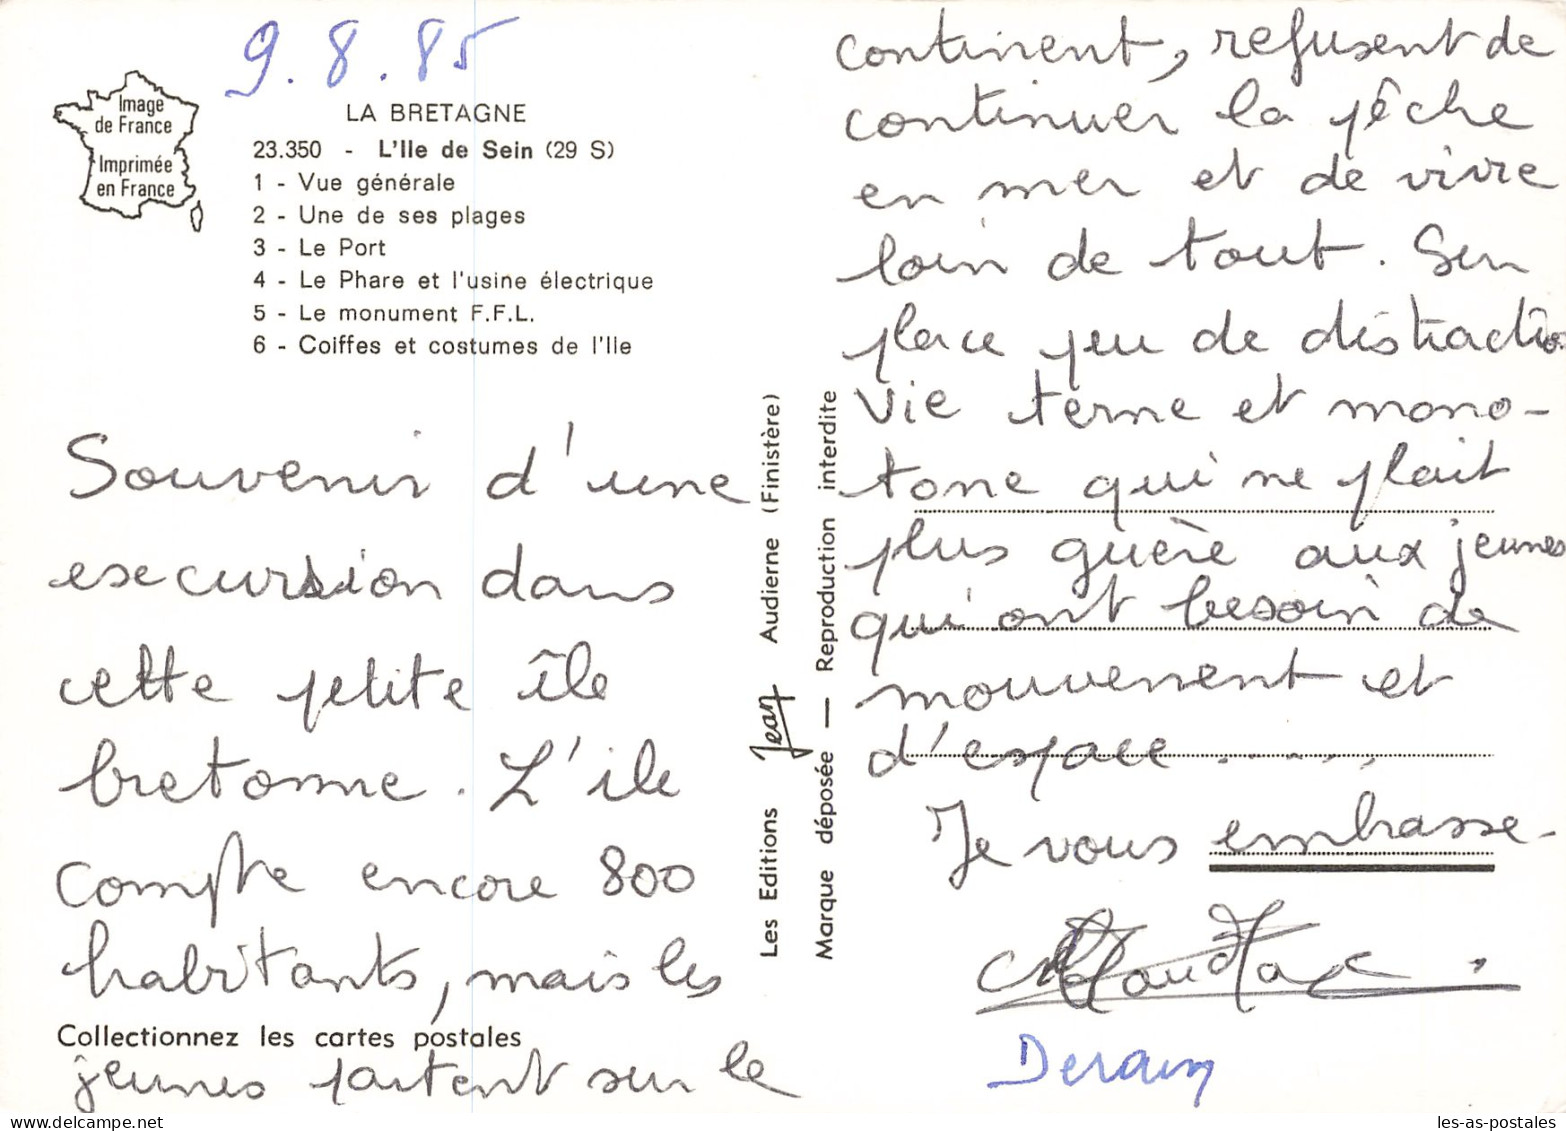 9.8.85
Image
de France
Imprimée
en France
LA BRETAGNE
23.350 - L'Ile de Sein (29 S)
1 - Vue générale
2 - Une de ses plages
3 - Le Port
4 - Le Phare et l'usine électrique
5 - Le monument F.F.L.
6 - Coiffes et costumes de l'Ile
Souvenir d'une
excursion dans
cette petite île
bretonne. L'ile
compte encore 800
habitants, mais les
Collectionnez les cartes postales
jeunes partent sur le
Les Editions Jean Audierne (Finistère)
Marque déposée — Reproduction interdite
continent, refusent de
continuer la pêche
en mer et de vivre
loin de tout. Sur
place peu de distraction
vie terne et mono-
tone qui ne plait
plus guère aux jeunes
qui ont besoin de
mouvement et
d'espace......
Je vous embrasse.